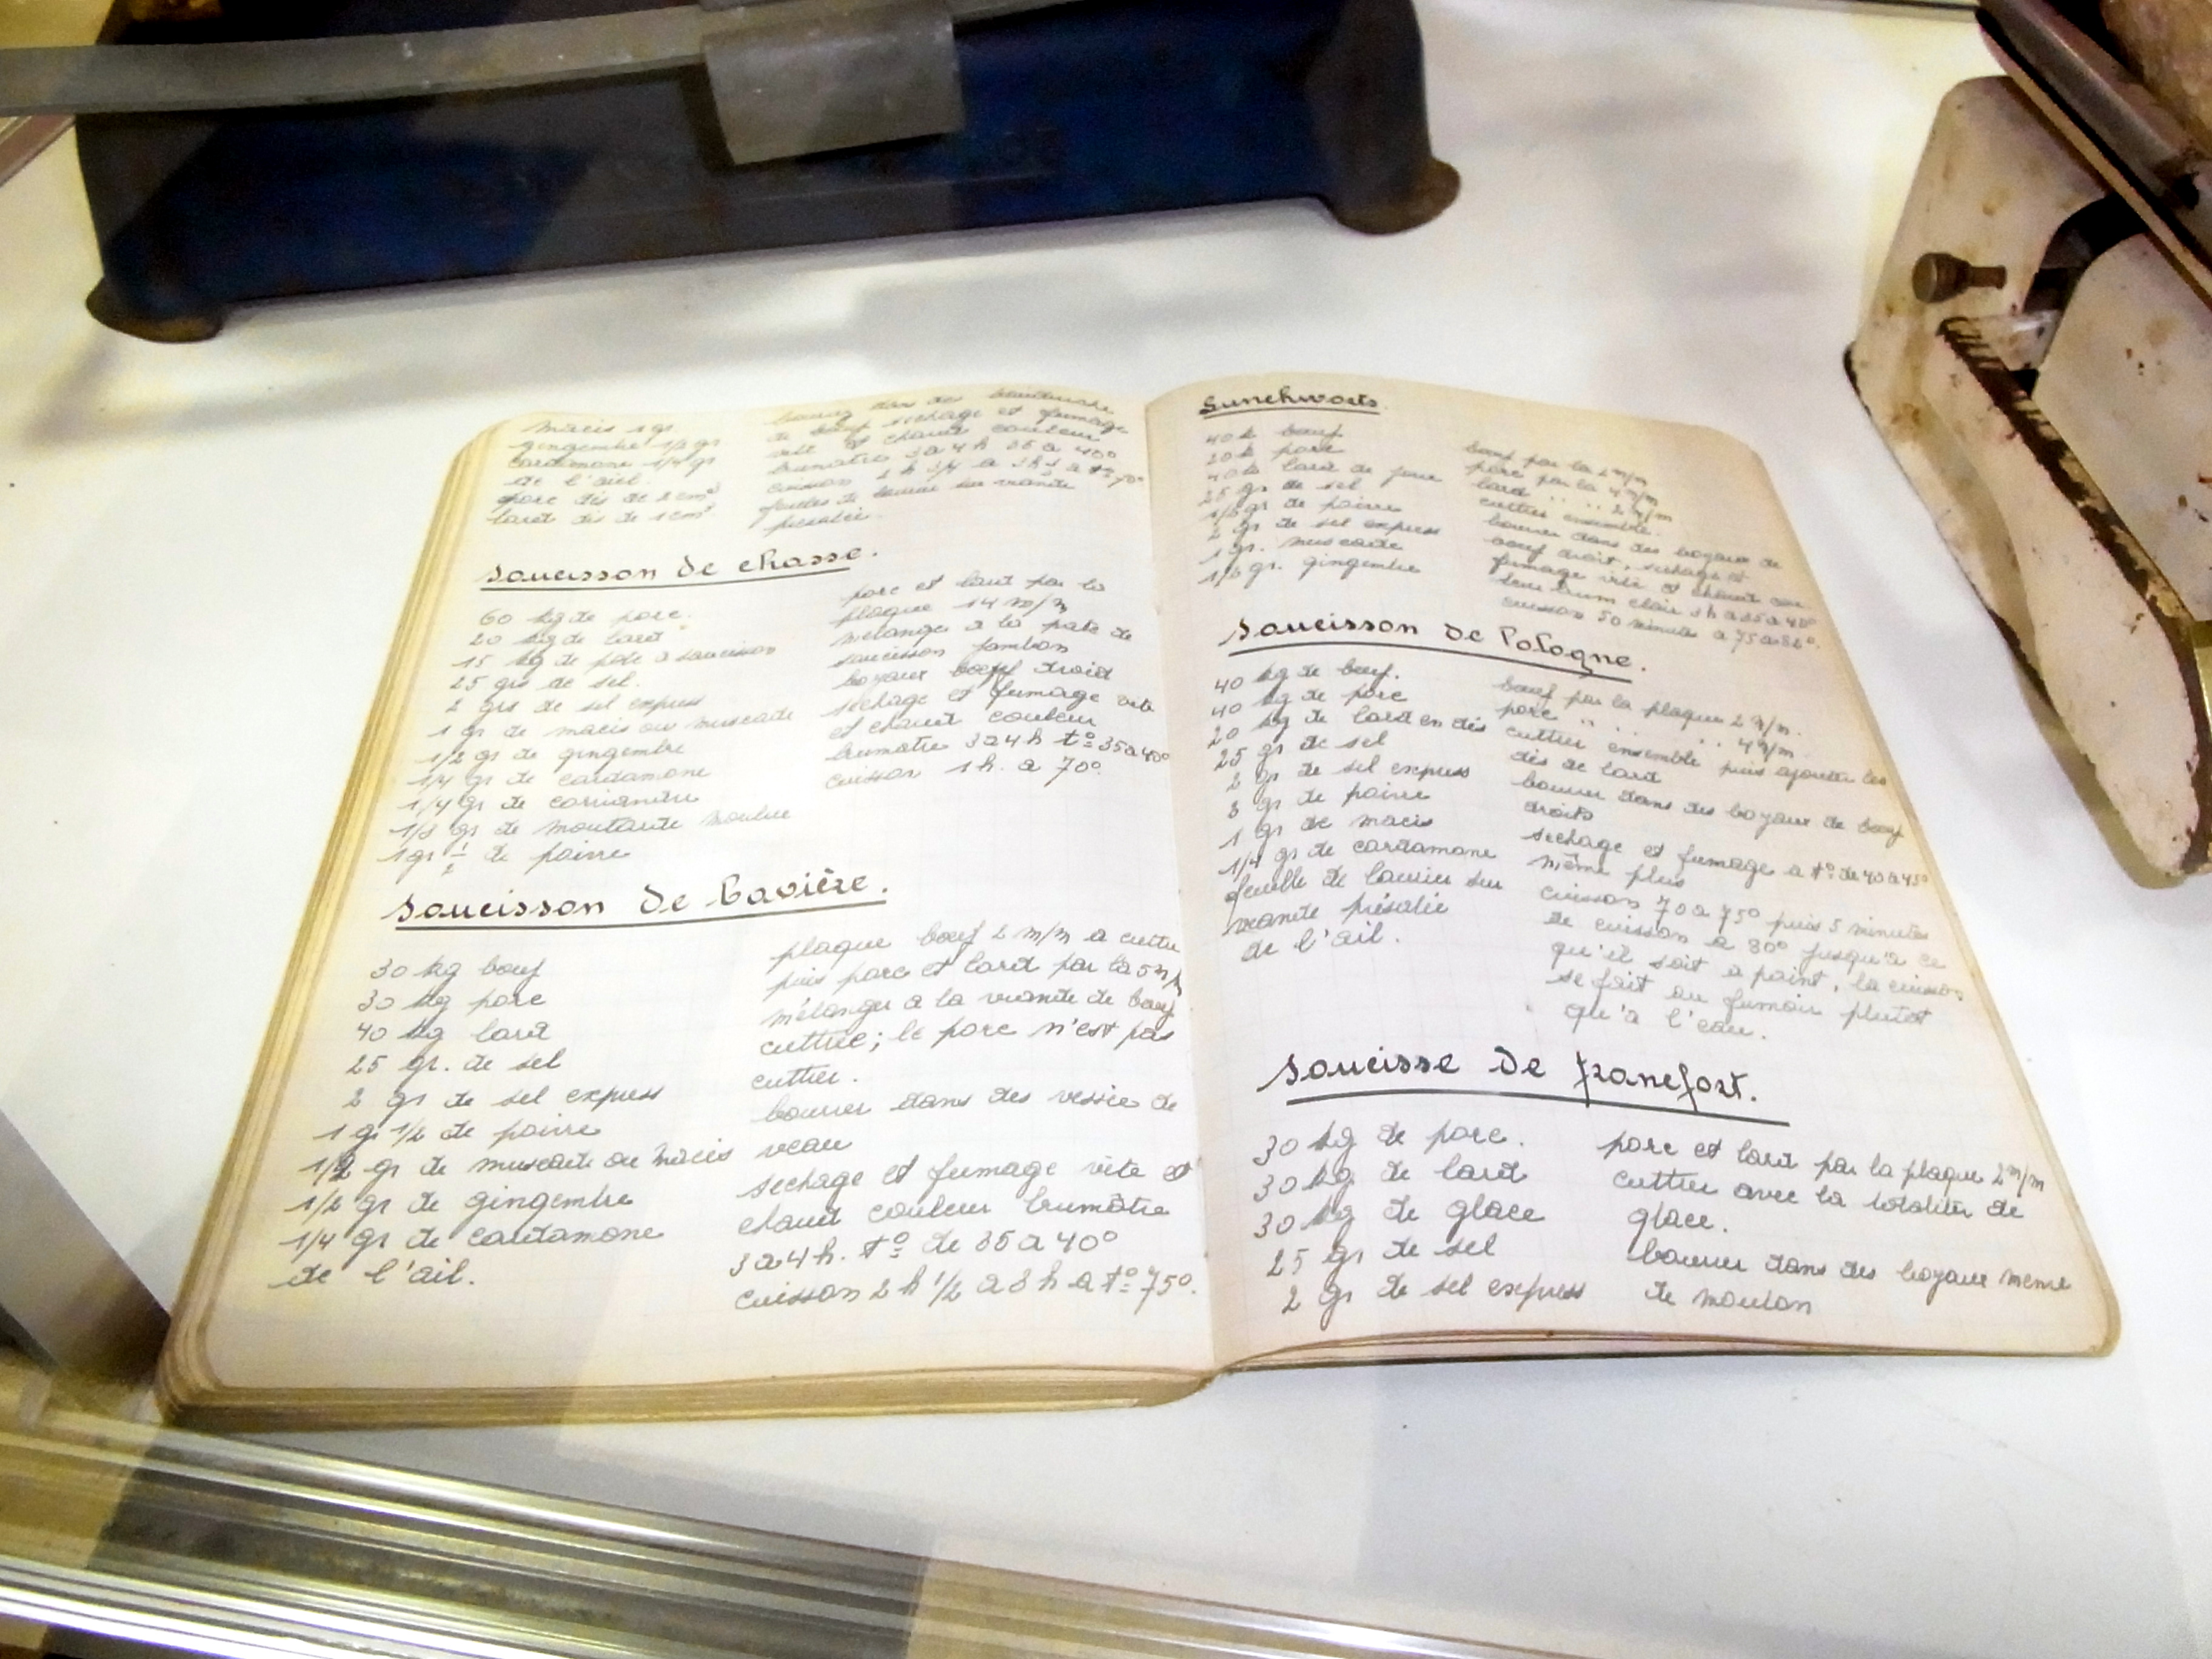 macis 1 gr
gingembre 1/2 gr
cardamone 1/4 gr
de l'ail.
porc dés de 2 cm³
lard dés de 1 cm³
de bœuf sechage et fumage
vite et chaud couleur
brunatre 3 a 4 h 35 a 40°
cuisson 2 h 3/4 a 3 h
feuilles de laurier sur viande
présalée.
saucisson de chasse.
60 kg de porc.
20 kg de lard
15 kg de pate a saucisson
25 grs de sel.
2 grs de sel express
1 gr de macis ou muscade
1/2 gr de gingembre
1/4 gr de cardamone
1/4 gr de corriandre
1/3 gr de moutarde moulue
1 gr 1/2 de poivre
porc et lard par la
plaque 14 m/m
mélange a la pate de
saucisson jambon
boyaux boeuf droit
sechage et fumage vite
et chaud couleur
brunatre 3 a 4 h t° 35 a 40°
cuisson 1 h. a 70°.
saucisson de Bavière.
30 kg bœuf
30 kg porc
40 kg lard
25 gr. de sel
2 gr de sel express
1 gr 1/2 de poivre
1/2 gr de muscade ou macis
1/2 gr de gingembre
1/4 gr de cardamone
de l'ail.
plaque bœuf 2 m/m a cutter
puis porc et lard par la 5 m/m
mélanger a la viande de bœuf
cuttrée; le porc n'est pas
cuttrer.
bourrer dans des vessie de
veau
sechage et fumage vite et
chaud couleur brunâtre
3 a 4 h. t° de 35 a 40°
cuisson 2 h 1/2 a 3 h a t° 75°.
Lunchworts.
40 k bœuf
20 k porc
40 k lard de
25 gr de sel
gr de poivre
2 gr de sel express
1 gr. muscade
gr. gingembre
bœuf par la 2 m/m
porc par la 4 m/m
lard " " 2 m/m
cuttrer ensemble.
bourrer dans des boyaux de
bœuf droit, sechage et
fumage vite et chaud cou
leur brun clair 3 h a 35 a 40°
cuisson 50 minutes a 75 a 80°.
saucisson de Pologne.
40 kg de bœuf.
40 kg de porc
20 kg de lard en dés
25 gr de sel
2 gr de sel express
3 gr de poivre
1 gr de macis
1/4 gr de cardamone
feuille de laurier sur
viande présalée
de l'ail.
bœuf par la plaque 2 m/m.
porc " " " 4 m/m
cuttrer ensemble puis ajouter les
dés de lard
bourrer dans des boyaux de bœuf
droits
sechage et fumage a t° de 40 a 45°
même plus
cuisson 70 a 75° puis 5 minutes
de cuisson a 80° jusqu'a ce
qu'il soit a point, la cuisson
se fait au fumoir plutot
qu'a l'eau.
saucisse de francfort.
30 kg de porc.
30 kg de lard
30 kg de glace
25 gr de sel
2 gr de sel express
porc et lard par la plaque 2 m/m
cuttrer avec la totalitée de
glace.
bourrer dans des boyaux meme
de mouton